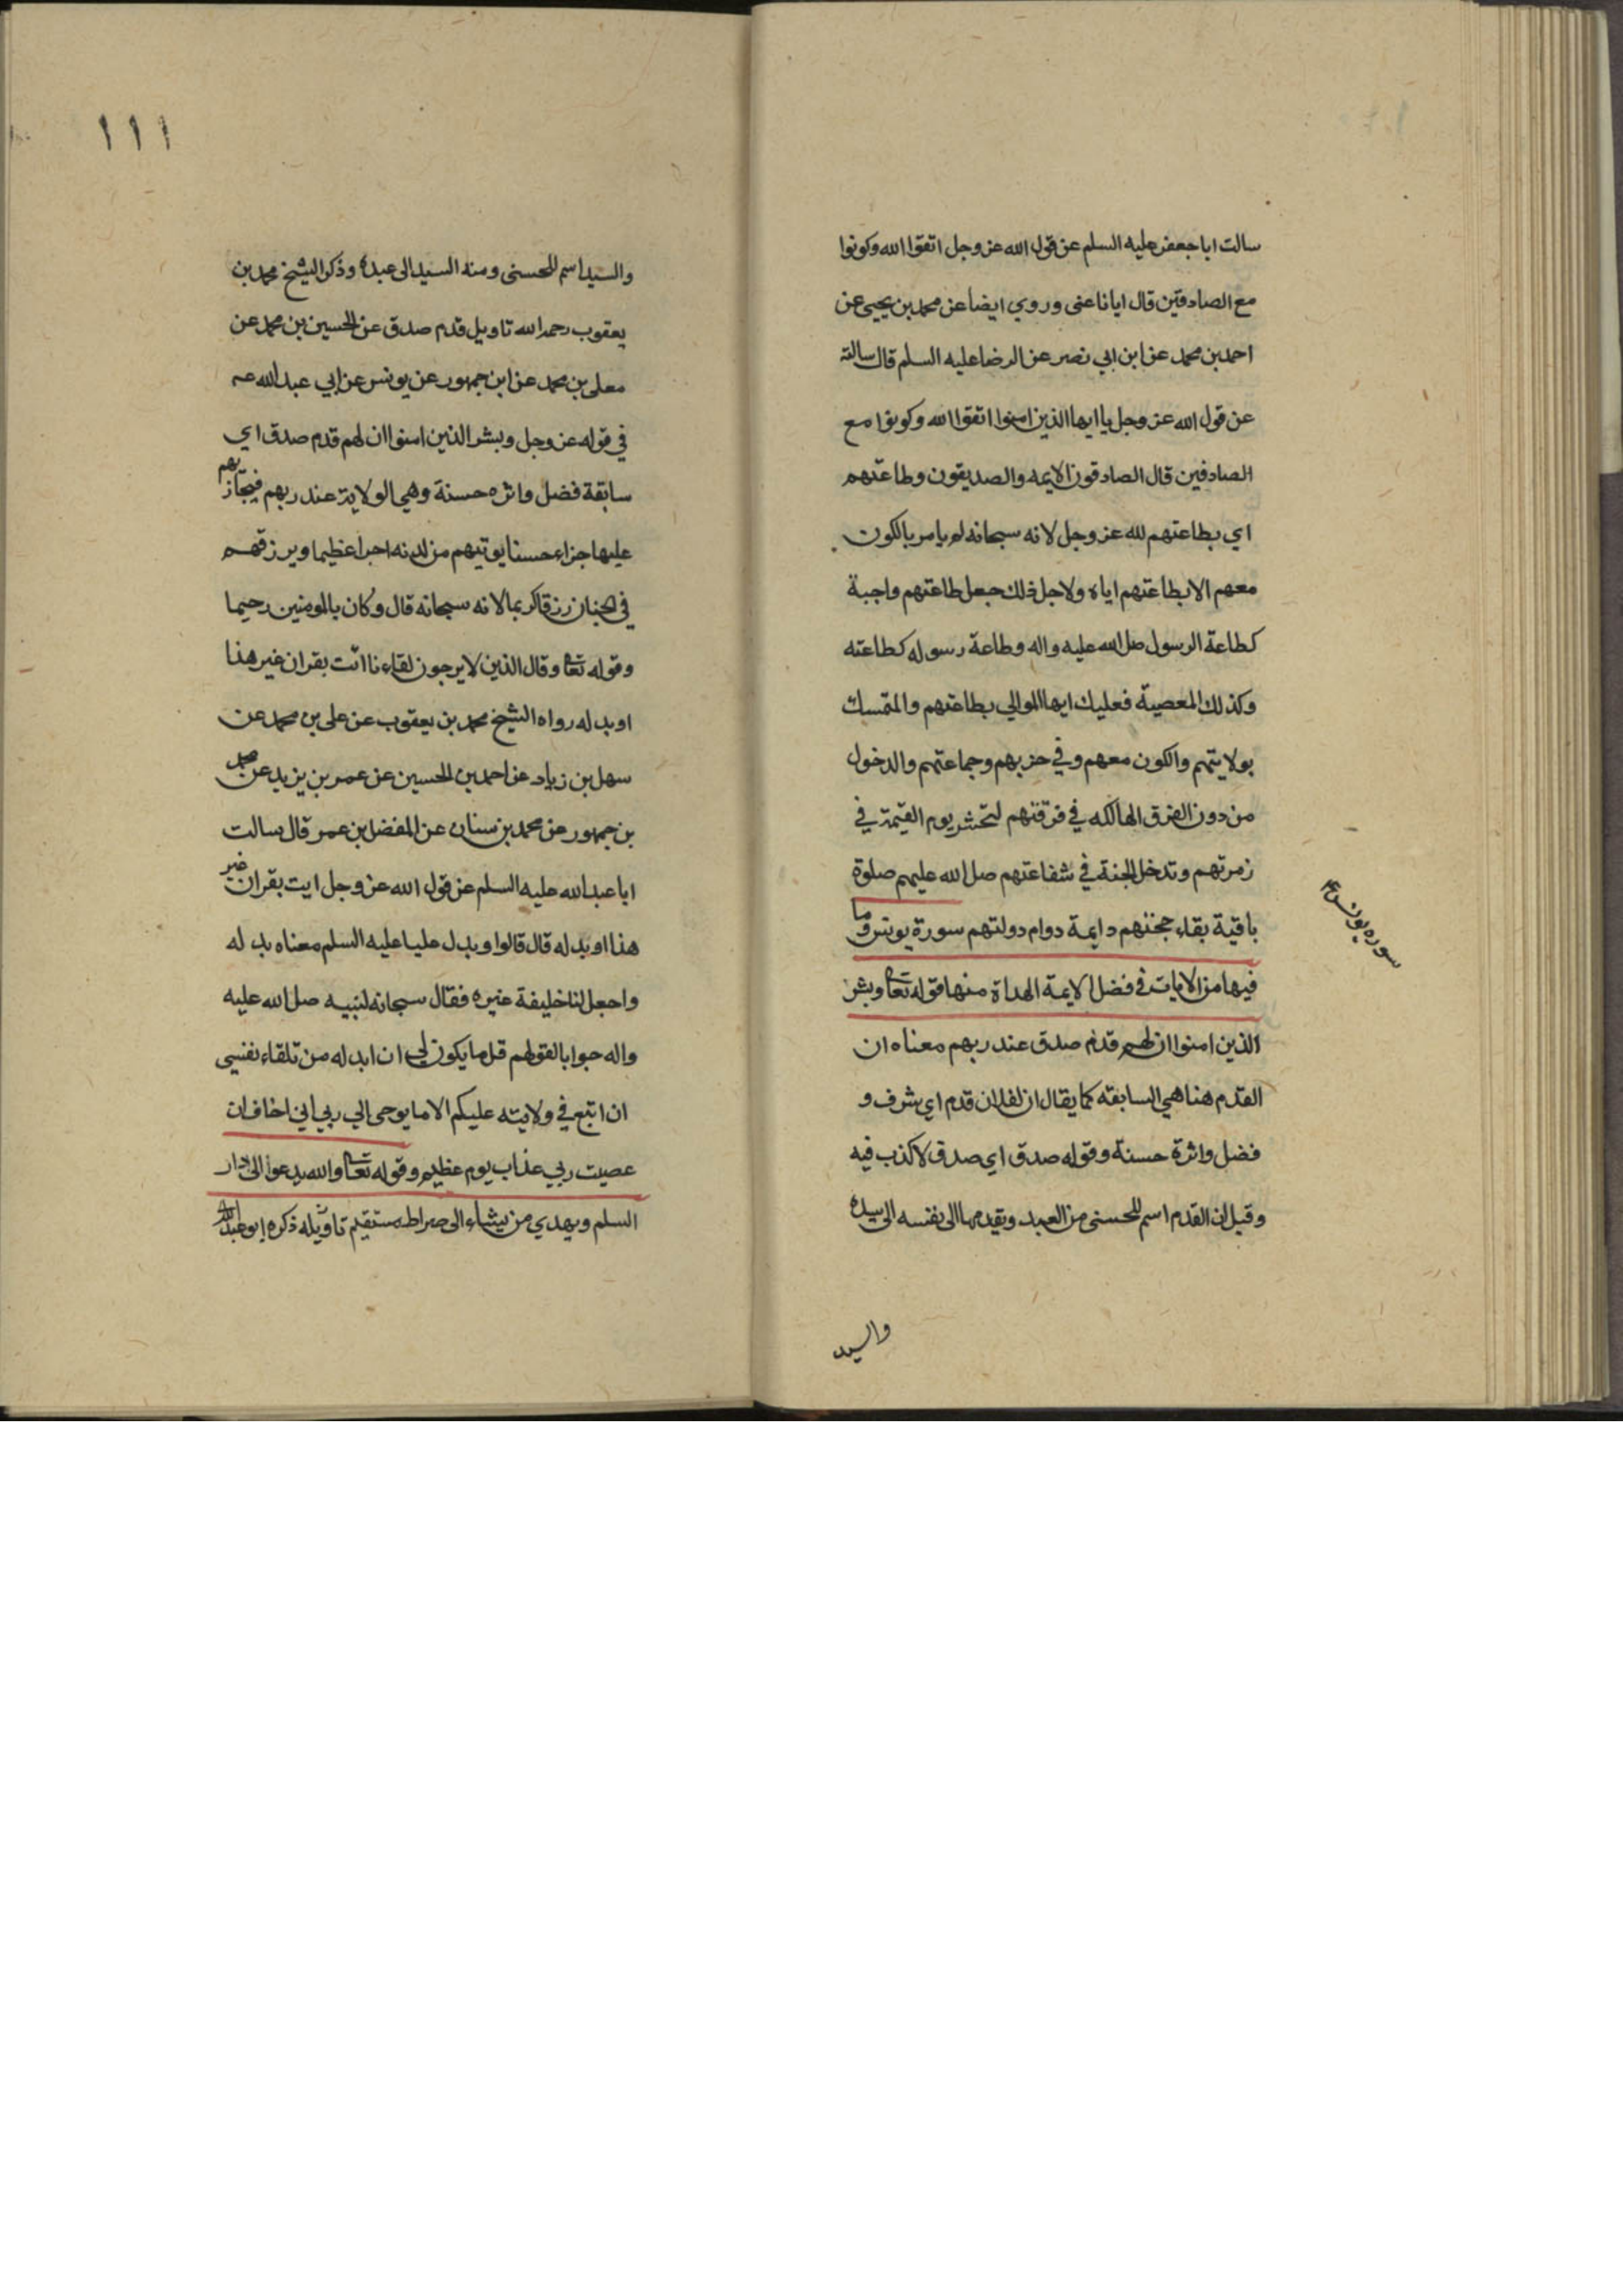 سالت ابا جعفر عليه السلم عن قول الله عز وجل اتقوا الله وكونوا
مع الصادقين قال ايانا عنى وروي ايضا عن محمد بن يحيى عن
احمد بن محمد عن ابن ابي نصر عن الرضا عليه السلم قال سالته
عن قول الله عز وجل يا ايها الذين امنوا اتقوا الله وكونوا مع
الصادقين قال الصادقون الايمه والصديقون وطاعتهم
اي بطاعتهم لله عز وجل لانه سبحانه لم يامر بالكون
معهم الا بطاعتهم اياه ولاجل ذلك جعل طاعتهم واجبة
كطاعة الرسول صل الله عليه واله وطاعة رسوله كطاعته
وكذلك المعصية فعليك ايها الموالي بطاعتهم والتمسك
بولايتهم والكون معهم وفي حزبهم وجماعتهم والدخول
من دون الفرق الهالكه في فرقتهم لتحشر يوم القيمة في
زمرتهم وتدخل الجنة في شفاعتهم صل الله عليهم صلوة
باقية بقاء حجتهم دايمة دوام دولتهم سورة يونس وما
فيها من الايات في فضل الايمة الهداة منها قوله تعا وبشر
الذين امنوا ان لهم قدم صدق عند ربهم معناه ان
القدم هنا هي السابقه كما يقال ان لفلان قدم اي شرف و
فضل واثرة حسنة وقوله صدق اي صدق لا كذب فيه
وقيل ان القدم اسم للحسنى من العبد ويقدمها الى نفسه الى سيده
والسيد
سوره يونس ع
١١١
والسيد اسم للحسنى ومنه السيد الى عبده وذكر الشيخ محمد بن
يعقوب رحمه الله تاويل قدم صدق عن الحسين بن محمد عن
معلى بن محمد عن ابن جمهور عن يونس عن ابي عبد الله عه
في قوله عز وجل وبشر الذين امنوا ان لهم قدم صدق اي
سابقة فضل واثره حسنة وهي الولاية عند ربهم فيجازيهم
عليها جزاء حسنا يوتيهم من لدنه اجرا عظيما ويرزقهم
في الجنان رزقا كريما لانه سبحانه قال وكان بالمومنين رحيما
وقوله تعا وقال الذين لا يرجون لقاءنا ائت بقران غير هذا
او بدله رواه الشيخ محمد بن يعقوب عن على بن محمد عن
سهل بن زياد عن احمد بن الحسين عن عمر بن يزيد عن محمد
بن جمهور عن محمد بن سنان عن المفضل بن عمر قال سالت
ابا عبد الله عليه السلم عن قول الله عز وجل ايت بقران غير
هذا او بدله قال قالوا وبدل عليا عليه السلم معناه بدله
واجعل لنا خليفة غيره فقال سبحانه لنبيه صل الله عليه
واله جوابا لقولهم قل ما يكون لي ان ابدله من تلقاء نفسي
ان اتبع في ولايته عليكم الا ما يوحى الي ربي اني اخاف ان
عصيت ربي عذاب يوم عظيم وقوله تعا والله يدعوا الى دار
السلم ويهدي من يشاء الى صراط مستقيم تاويله ذكره ابو عبد الله